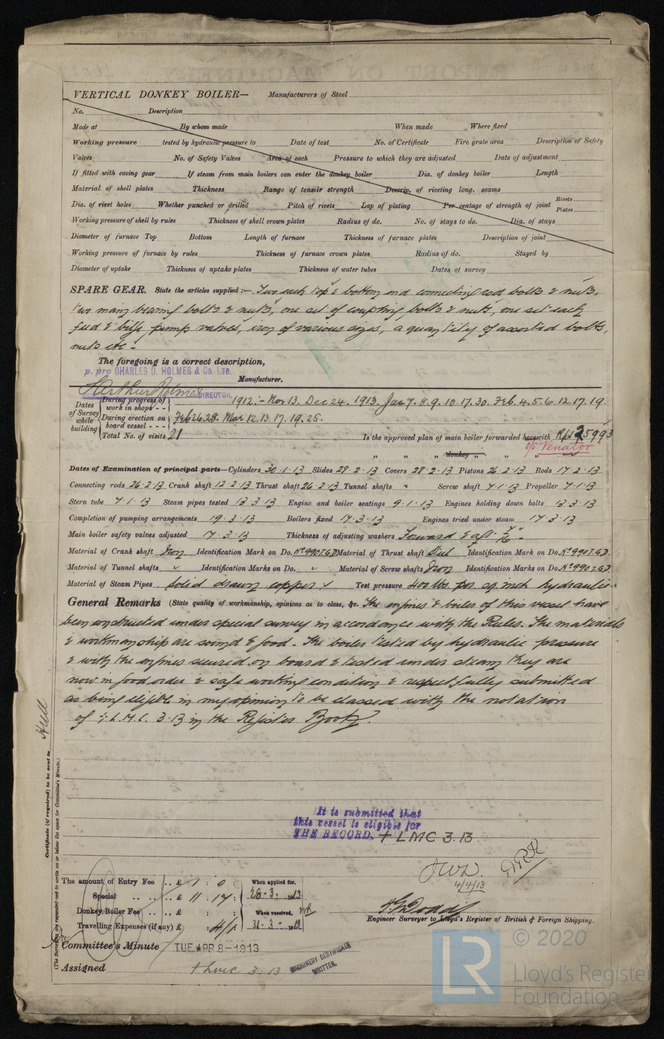 VERTICAL DONKEY BOILER— Manufacturers of Steel
No. Description
Made at By whom made When made Where fixed
Working pressure tested by hydraulic pressure to Date of test No. of Certificate Fire grate area Description of Safety
Valves No. of Safety Valves Area of each Pressure to which they are adjusted Date of adjustment
If fitted with casing gear If steam from main boilers can enter the donkey boiler Dia. of donkey boiler Length
Material of shell plates Thickness Range of tensile strength Descrip. of riveting long. seams
Dia. of rivet holes Whether punched or drilled Pitch of rivets Lap of plating Per centage of strength of joint Rivets Plates
Working pressure of shell by rules Thickness of shell crown plates Radius of do. No. of stays to do. Dia. of stays
Diameter of furnace Top Bottom Length of furnace Thickness of furnace plates Description of joint
Working pressure of furnace by rules Thickness of furnace crown plates Radius of do. Stayed by
Diameter of uptake Thickness of uptake plates Thickness of water tubes Dates of survey
SPARE GEAR. State the articles supplied:— Two each top & bottom end connecting rod bolts & nuts,
two main bearing bolts & nuts, one set of coupling bolts & nuts, one set each
feed & bilge pump valves, iron of various sizes, a quantity of assorted bolts,
nuts etc.
The foregoing is a correct description,
p. pro CHARLES D. HOLMES & Co. LTD.
Arthur Holmes DIRECTOR. Manufacturer.
Dates of Survey while building
During progress of work in shops - - 1912.- Nov 13. Dec 24. 1913. Jan 7. 8. 9. 10. 17. 30. Feb 4. 5. 6. 12. 17. 19.
During erection on board vessel - - - Feb 26. 28. Mar 12. 13. 17. 19. 25.
Total No. of visits 21 Is the approved plan of main boiler forwarded herewith Rpt 25993
" " " donkey " " " S/S Venator
Dates of Examination of principal parts—Cylinders 30.1.13 Slides 28.2.13 Covers 28.2.13 Pistons 26.2.13 Rods 17.2.13
Connecting rods 26.2.13 Crank shaft 12.2.13 Thrust shaft 26.2.13 Tunnel shafts " Screw shaft 7.1.13 Propeller 7.1.13
Stern tube 7.1.13 Steam pipes tested 13.3.13 Engine and boiler seatings 9.1.13 Engines holding down bolts 13.3.13
Completion of pumping arrangements 19.3.13 Boilers fixed 17.3.13 Engines tried under steam 17.3.13
Main boiler safety valves adjusted 17.3.13 Thickness of adjusting washers Forward & aft
Material of Crank shaft Iron Identification Mark on Do. Material of Thrust shaft Steel Identification Mark on Do.
Material of Tunnel shafts " Identification Marks on Do. " Material of Screw shafts Iron Identification Marks on Do.
Material of Steam Pipes Solid drawn copper Test pressure 400 lbs per sq inch hydraulic.
General Remarks (State quality of workmanship, opinions as to class, &c. The engines & boiler of this vessel have
been constructed under special survey in accordance with the Rules. The materials
& workmanship are sound & good. The boiler tested by hydraulic pressure
& with the engines secured on board & tested under steam they are
now in good order & safe working condition & respectfully submitted
as being eligible in my opinion to be classed with the notation
of L.M.C. 3.13 in the Register Book.
Certificate (if required) to be sent to Hull
It is submitted that
this vessel is eligible for
THE RECORD. + LMC 3.13.
4/4/13
The amount of Entry Fee .. £ 1 : 0 When applied for,
Special .. .. £ 11 : 14 : 28.3.1913
Donkey Boiler Fee .. .. £ : : When received,
Travelling Expenses (if any) £ : 4/1 31.3.1913
Engineer Surveyor to Lloyd's Register of British & Foreign Shipping.
Committee's Minute TUE APR 8-1913
Assigned + LMC 3.13 MACHINERY CERTIFICATE WRITTEN.
LR © 2020
Lloyd's Register
Foundation